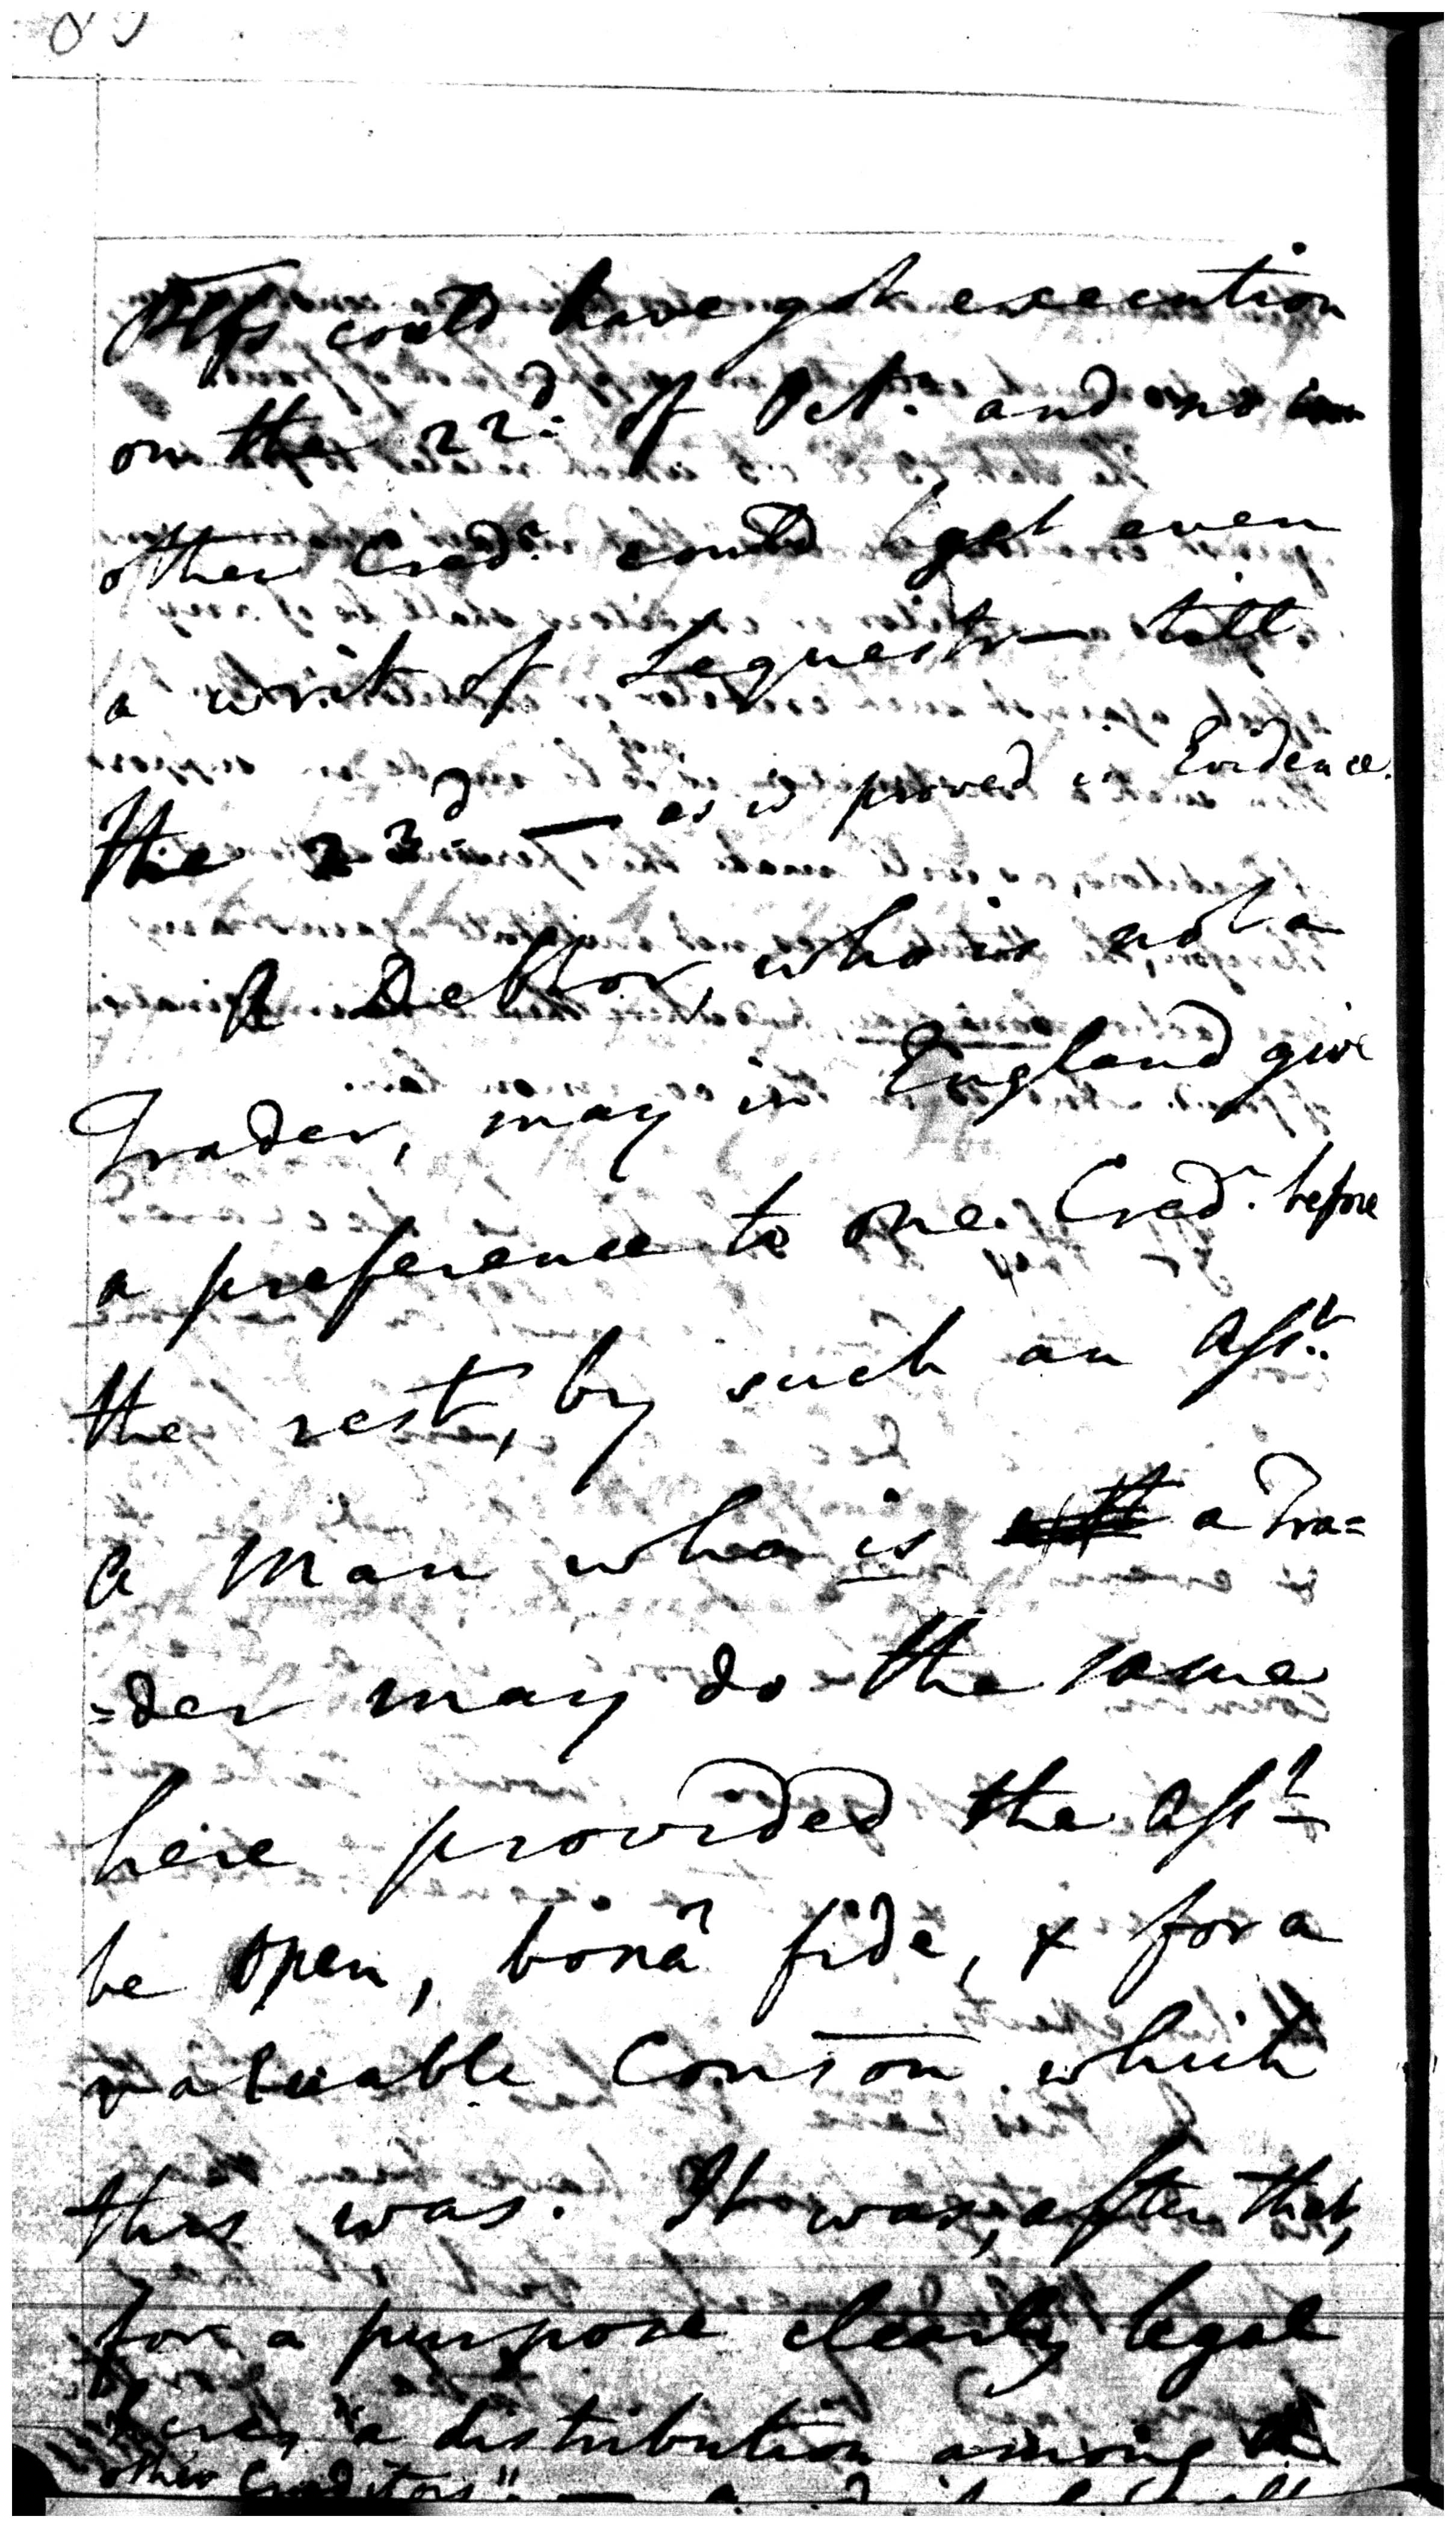 85
Pltfs could have got execution
on the 22d. of Oct. and no
other Credr. could get even
a writ of Sequestr— till
the 23d. — as is proved in Evidence.
A Debtor, who is not a
Trader, may in England give
a preference to one Credr. before
the rest, by such an Asst.
a man who is a Tra=
=der may do the same
here provided the Asst
be open, bonâ fide, & for a
valuable Conson which
this was. It was, after that,
for a purpose clearly legal
here, "a distribution among
other Creditors" —